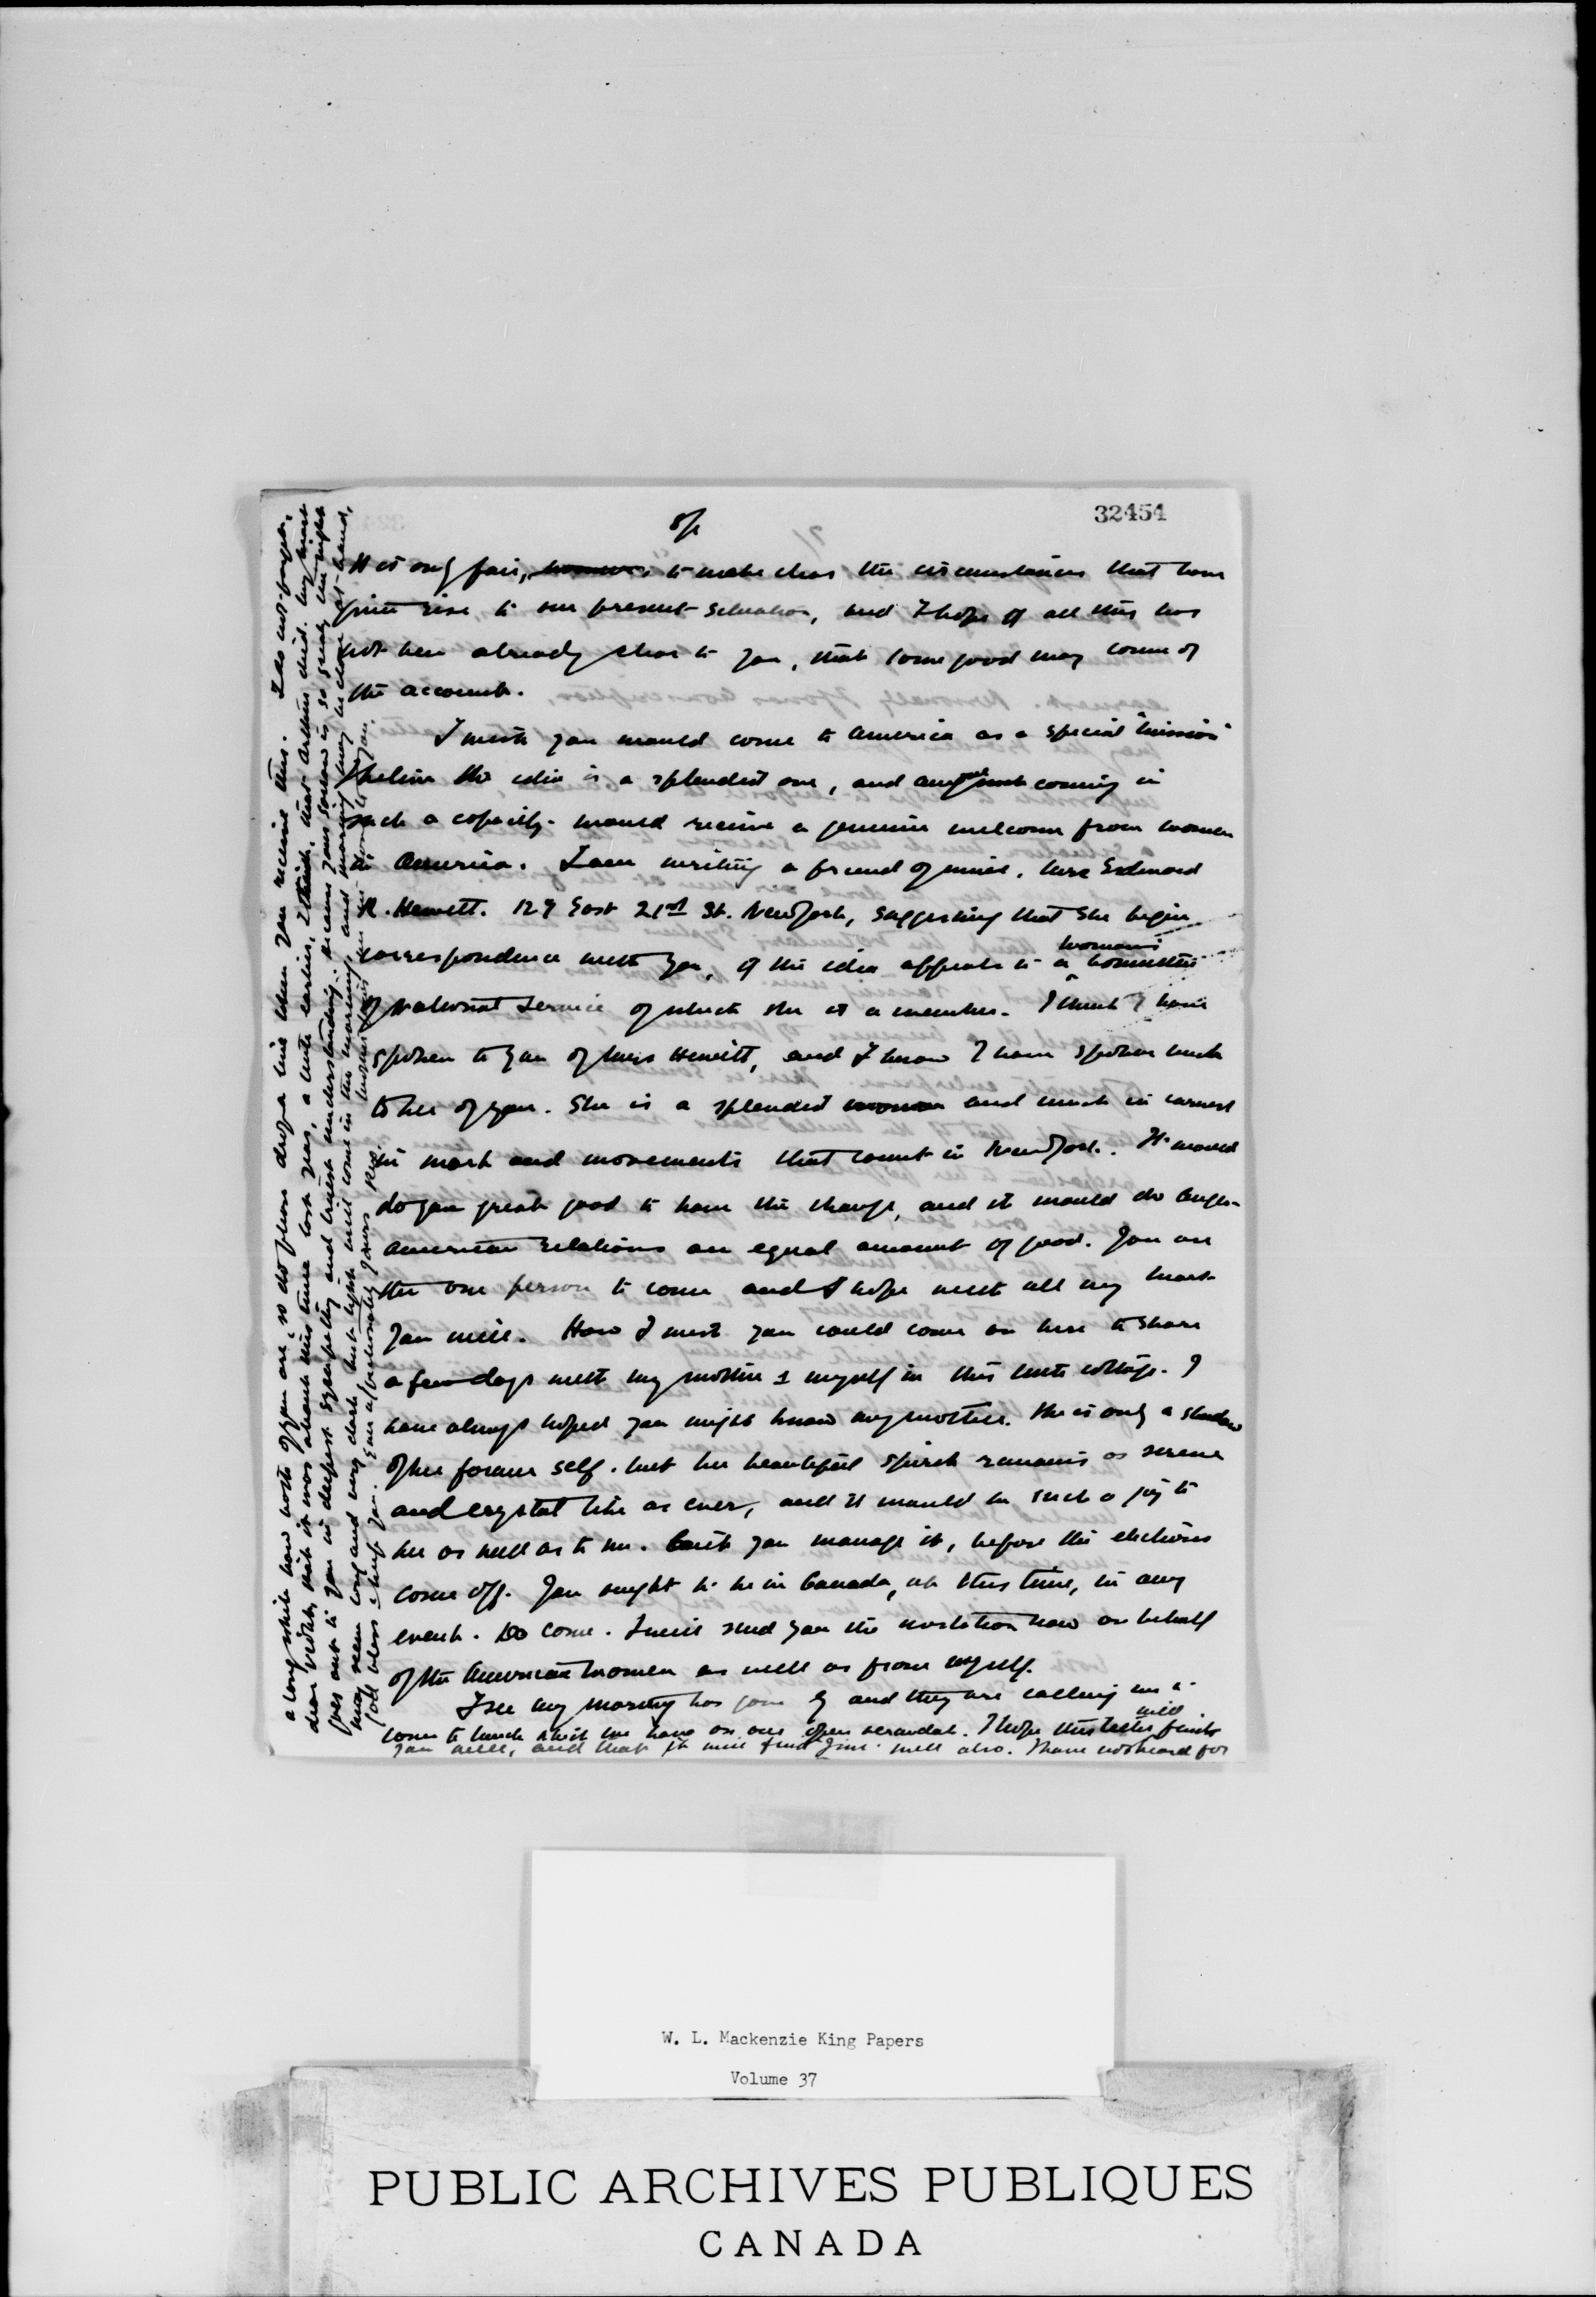 8/
32454
It is only fair, however, to make clear the circumstances that have
given rise to our present situation, and I hope if all this has
not been already clear to you, that some good may come of
the account.
I wish you would come to America as a special "mission"
I believe the idea is a splendid one, and any such coming in
such a capacity would receive a genuine welcome from women
in America. I am writing a friend of mine, Mrs Edmond
R. Hewitt. 127 East 21st St. New York, suggesting that she begin
correspondence with you, if the idea appeals to a woman's Committee
of National Service of which she is a member. I think I have
spoken to you of Mrs Hewitt, and I know I have spoken much
to her of you. She is a splendid woman and much in earnest
in work and movements that count in New York. It would
do you great good to have the change, and it would do Anglo-
American relations an equal amount of good. You are
the one person to come and I hope with all my heart
you will. How I wish you could come on here to share
a few days with my mother & myself in this little cottage. I
have always hoped you might know my mother. She is only a shadow
of her former self. but her beautiful spirit remains as serene
and crystal like as ever, and it would be such a joy to
her as well as to me. Can't you manage it, before the elections
come off. You ought to be in Canada, at this time, in any
event. Do come. I will send you the invitation now on behalf
of the American women as well as from myself.
I see my morning has gone by and they are calling me to
come to lunch which we have on our open verandah. I hope this letter will find
you well, and that it will find Jim well also. I have not heard for
a long while how both of you are, so do please drop a line when you receive this. I do not forget,
dear Violet, that it was about this time last year, a little earlier, I think, that Arthur died. My heart
goes out to you in deepest sympathy and truest understanding, because your sorrow is so great, the night
may seem long and very dark but light will come in the morning, and morning may be close at hand,
God bless & keep you. Ever affectionately yours Rex.
W. L. Mackenzie King Papers
Volume 37
PUBLIC ARCHIVES PUBLIQUES
CANADA